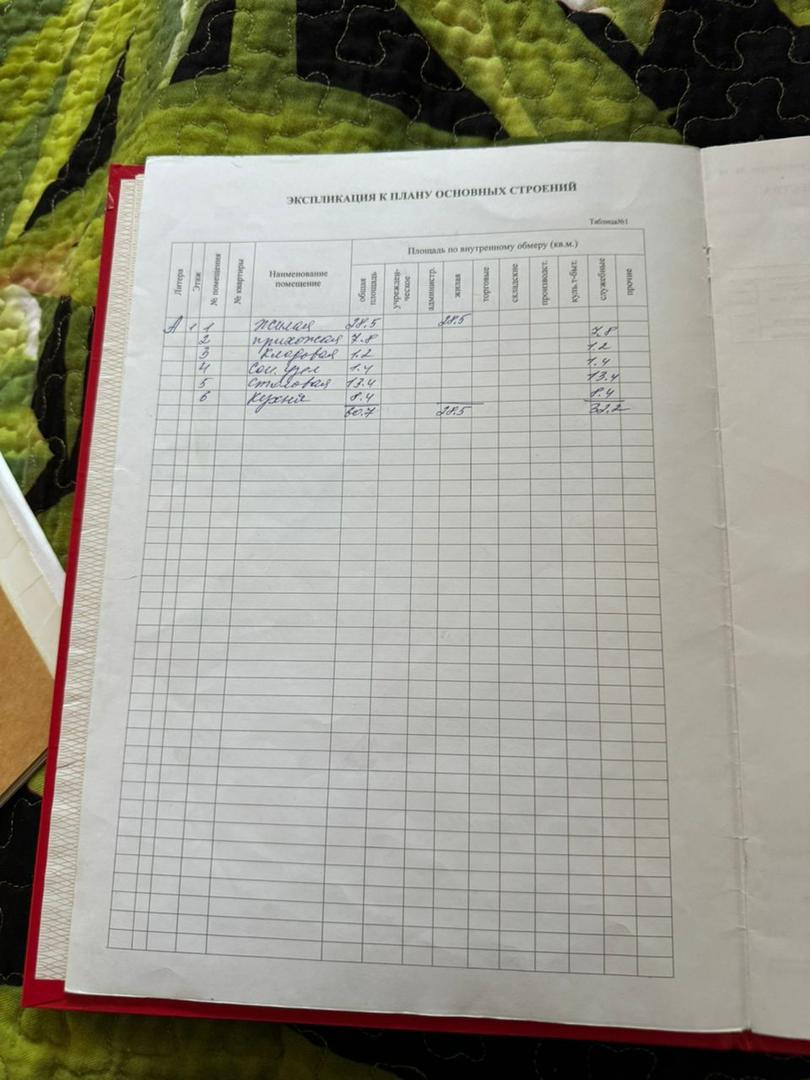 ЭКСПЛИКАЦИЯ К ПЛАНУ ОСНОВНЫХ СТРОЕНИЙ
Таблица№1
Литера
Этаж
№ помещения
№ квартиры
Наименование помещение
Площадь по внутреннему обмеру (кв.м.)
общая площадь
учрежден-ческое
администр.
жилая
торговые
складские
производст.
культ-быт.
служебные
прочие
А 1 1 жилая 28.5 28.5
2 прихожая 7.8 7.8
3 Кладовая 1.2 1.2
4 Сан. узел 1.4 1.4
5 Столовая 13.4 13.4
6 Кухня 8.4 8.4
60.7 28.5 32.2